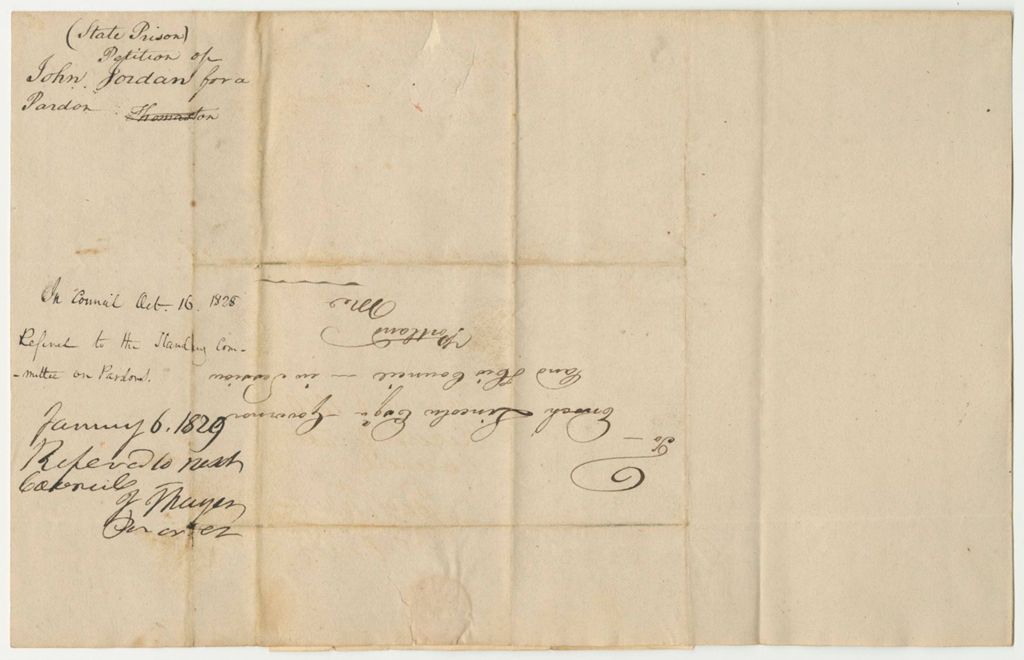 (State Prison)
Petition of
John Jordan for a
Pardon Thomaston
In Council Oct. 16. 1828
Referred to the Standing Com-
-mittee on Pardons.
January 6. 1829
Refered to next
Council
J Thayer
To -
Enoch Lincoln Esqr - Governor
and His Council - in Session
Portland
Me